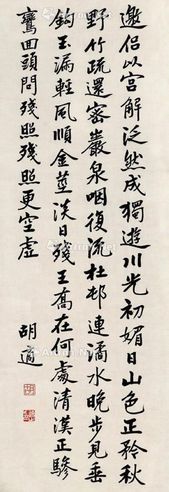 邀侶以官解泛然成獨遊川光初媚日山色正矜秋
野竹疏還密巖泉咽復流杜邨連潏水晚步見垂
鈎玉漏輕風順金莖淡日殘王喬在何處清漢正驂
鸞回頭問殘照殘照更空虛
胡適